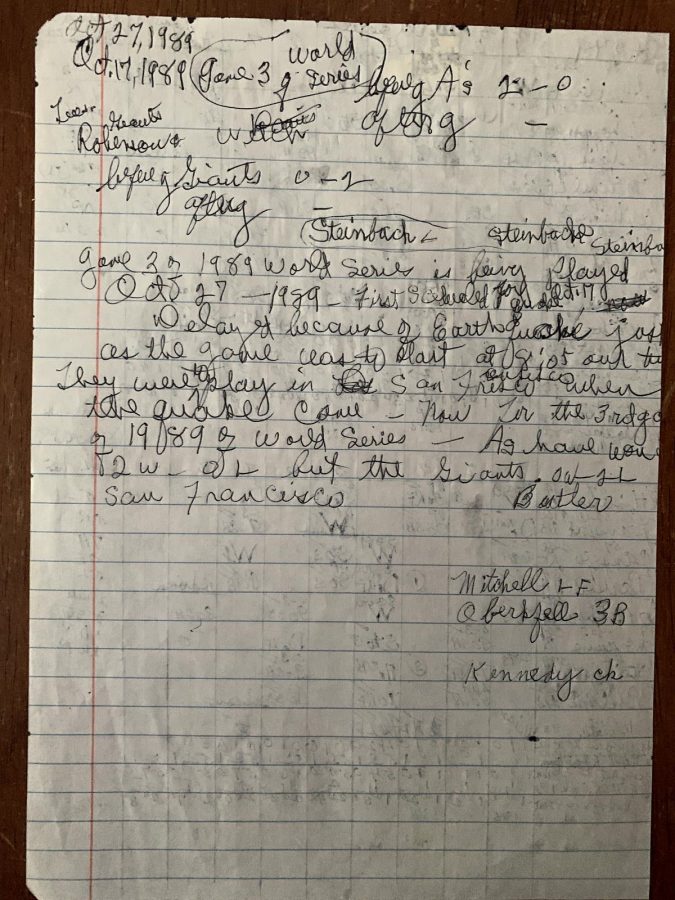 Oct 27, 1989
Oct. 17, 1989 Game 3 of World Series before A's 2 - 0
after g -
Giants
Robinson
before g Giants 0 - 2
after g -
Steinbach Steinbach Steinba
Game 3 of 1989 World Series is being played
Oct 27 - 1989 - First Scheduled for Oct. 17
Delayed because of Earthquake just
as the game was to start at 8:05 our ti
They were to play in San Francisco when
the quake come - Now for the 3rd ga
of 1989 of World Series - As have won
2 W - 0 L but the Giants 0W-2L
San Francisco Butler
Mitchell LF
Oberkfell 3B
Kennedy ck